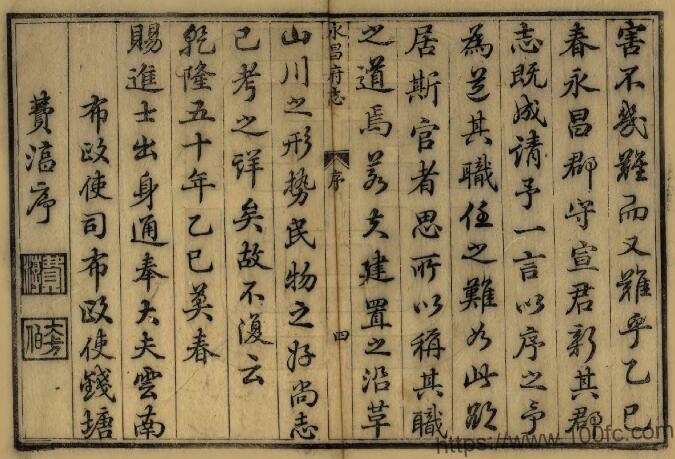 害不幾難而又難乎乙巳
春永昌郡守宣君新其郡
志既成請予一言以序之予
為道其職任之難如此欲
居斯官者思所以稱其職
之道焉若夫建置之沿革
永昌府志
序
四
山川之形勢民物之好尚志
已考之詳矣故不復云
乾隆五十年乙巳莫春
賜進士出身通奉大夫雲南
布政使司布政使錢塘
費淳序
https://www.100fc.com